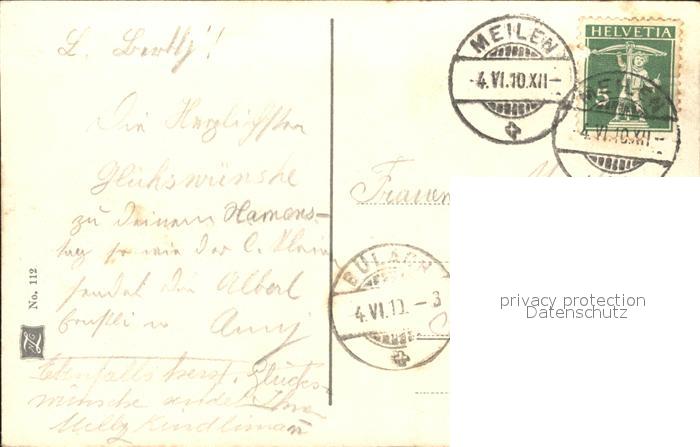 L. Berthy!
Die Herzlichsten
Glükswünshe
zu deinem Namens-
tag so wie der l.
sendet die Albert
u Anny
Ebenfalls herzl. Glücks-
wünsche sendet Ihnen
Milly Kindliman
No. 112
MEILEN
4.VI.10.XII
HELVETIA
5
MEILEN
4.VI.10.XII
Frauen
BÜLACH
4.VI.10. - 3
privacy protection
Datenschutz